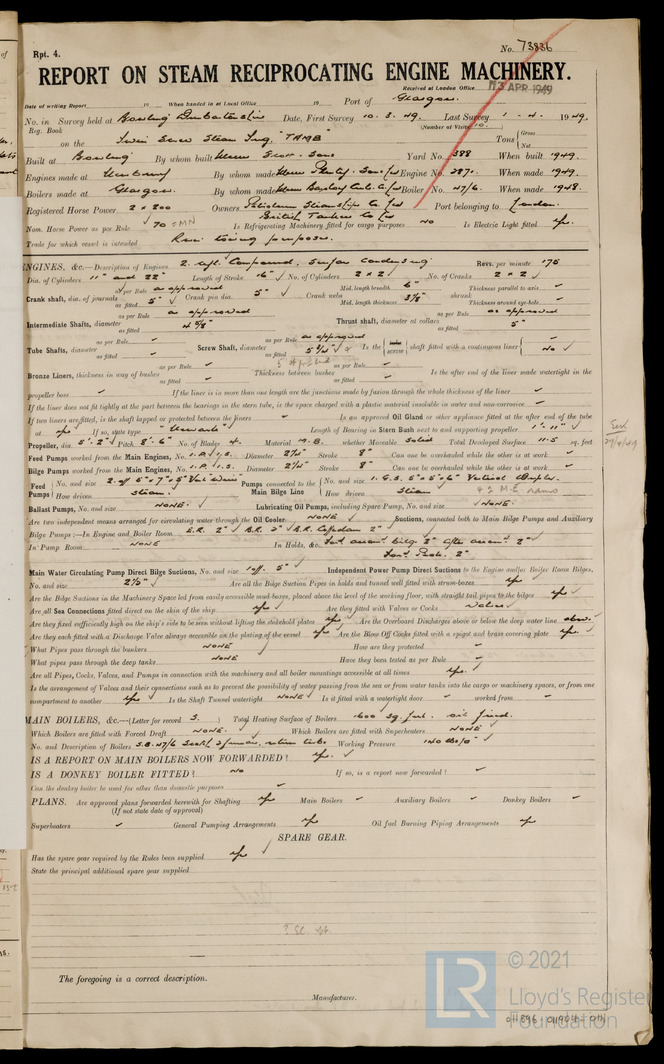 Rpt. 4.
No. 73836
REPORT ON STEAM RECIPROCATING ENGINE MACHINERY.
Received at London Office 13 APR 1949
Date of writing Report 19 When handed in at Local Office 19 Port of Glasgow.
No. in Survey held at Bowling Dunbartonshire Date, First Survey 10. 3. 49. Last Survey 1. 4. 1949.
Reg. Book (Number of Visits 10.)
on the Twin Screw Steam Tug. "TAMB" Tons Gross Net
Built at Bowling By whom built Scott & Sons Yard No. 388 When built 1949.
Engines made at By whom made Engine No. When made 1949.
Boilers made at Glasgow. By whom made Boiler No. 47/6. When made 1948.
Registered Horse Power 2 x 200 Owners Petroleum Steamship Co. Ltd Port belonging to London.
British Tanker Co Ltd
Nom. Horse Power as per Rule 70 = MN Is Refrigerating Machinery fitted for cargo purposes NO Is Electric Light fitted yes.
Trade for which vessel is intended River towing purposes.
ENGINES, &c.—Description of Engines 2. Compound, Surface condensing Revs. per minute 175
Dia. of Cylinders 11" and 22" Length of Stroke 16" No. of Cylinders 2 x 2 No. of Cranks 2 x 2
Crank shaft, dia. of journals as per Rule as approved as fitted 5" Crank pin dia. 5" Crank webs Mid. length breadth 6" Mid. length thickness 3 1/8" shrunk Thickness parallel to axis Thickness around eye-hole
Intermediate Shafts, diameter as per Rule as approved as fitted 4 7/8" Thrust shaft, diameter at collars as per Rule as approved as fitted 5"
Tube Shafts, diameter as per Rule as fitted Screw Shaft, diameter as per Rule as approved as fitted Is the screw shaft fitted with a continuous liner No
Bronze Liners, thickness in way of bushes as per Rule as fitted Thickness between bushes as per Rule as fitted Is the after end of the liner made watertight in the
propeller boss If the liner is in more than one length are the junctions made by fusion through the whole thickness of the liner
If the liner does not fit tightly at the part between the bearings in the stern tube, is the space charged with a plastic material insoluble in water and non-corrosive
If two liners are fitted, is the shaft lapped or protected between the liners Is an approved Oil Gland or other appliance fitted at the after end of the tube
at yes If so, state type "Newark" Length of Bearing in Stern Bush next to and supporting propeller 1'. 11"
Propeller, dia. 5'. 2" Pitch 8'. 6" No. of Blades 4. Material M.B. whether Moveable Solid Total Developed Surface 11.5 sq. feet
Feed Pumps worked from the Main Engines, No. 1.P. 1.S. Diameter 2 1/2" Stroke 8" Can one be overhauled while the other is at work
Bilge Pumps worked from the Main Engines, No. 1.P. 1.S. Diameter 2 1/2" Stroke 8" Can one be overhauled while the other is at work
Feed Pumps No. and size 2. off 5" x 7" x 5" How driven Steam. Pumps connected to the Main Bilge Line No. and size 1. G.S. 5" x 5" x 6" Vertical Duplex. How driven Steam
Ballast Pumps, No. and size NONE. Lubricating Oil Pumps, including Spare Pump, No. and size NONE.
Are two independent means arranged for circulating water through the Oil Cooler NONE Suctions, connected both to Main Bilge Pumps and Auxiliary
Bilge Pumps :—In Engine and Boiler Room E.R. 2" B.R. 2" B.R. Cofferdam 2"
In Pump Room NONE In Holds, &c. 2" 2"
Peak. 2"
Main Water Circulating Pump Direct Bilge Suctions, No. and size 1 off. 5" Independent Power Pump Direct Suctions to the Engine and/or Boiler Room Bilges,
No. and size 2 1/2" Are all the Bilge Suction Pipes in holds and tunnel well fitted with strum-boxes yes
Are the Bilge Suctions in the Machinery Space led from easily accessible mud-boxes, placed above the level of the working floor, with straight tail pipes to the bilges yes
Are all Sea Connections fitted direct on the skin of the ship yes Are they fitted with Valves or Cocks Valves
Are they fixed sufficiently high on the ship's side to be seen without lifting the stokehold plates yes Are the Overboard Discharges above or below the deep water line above.
Are they each fitted with a Discharge Valve always accessible on the plating of the vessel yes Are the Blow Off Cocks fitted with a spigot and brass covering plate yes.
What Pipes pass through the bunkers NONE How are they protected
What pipes pass through the deep tanks NONE Have they been tested as per Rule
Are all Pipes, Cocks, Valves, and Pumps in connection with the machinery and all boiler mountings accessible at all times yes.
Is the arrangement of Valves and their connections such as to prevent the possibility of water passing from the sea or from water tanks into the cargo or machinery spaces, or from one
compartment to another yes Is the Shaft Tunnel watertight NONE Is it fitted with a watertight door worked from
MAIN BOILERS, &c.—(Letter for record S.) Total Heating Surface of Boilers 1600 sq. feet. oil fired.
Which Boilers are fitted with Forced Draft NONE. Which Boilers are fitted with Superheaters NONE
No. and Description of Boilers S.B. 47/6 return tube Working Pressure
IS A REPORT ON MAIN BOILERS NOW FORWARDED? yes.
IS A DONKEY BOILER FITTED? NO If so, is a report now forwarded?
Can the donkey boiler be used for other than domestic purposes
PLANS. Are approved plans forwarded herewith for Shafting yes Main Boilers Auxiliary Boilers Donkey Boilers
(If not state date of approval)
Superheaters General Pumping Arrangements yes Oil fuel Burning Piping Arrangements yes
SPARE GEAR.
Has the spare gear required by the Rules been supplied yes
State the principal additional spare gear supplied
The foregoing is a correct description.
Manufacturer.
LR © 2021
Lloyd's Register
Foundation